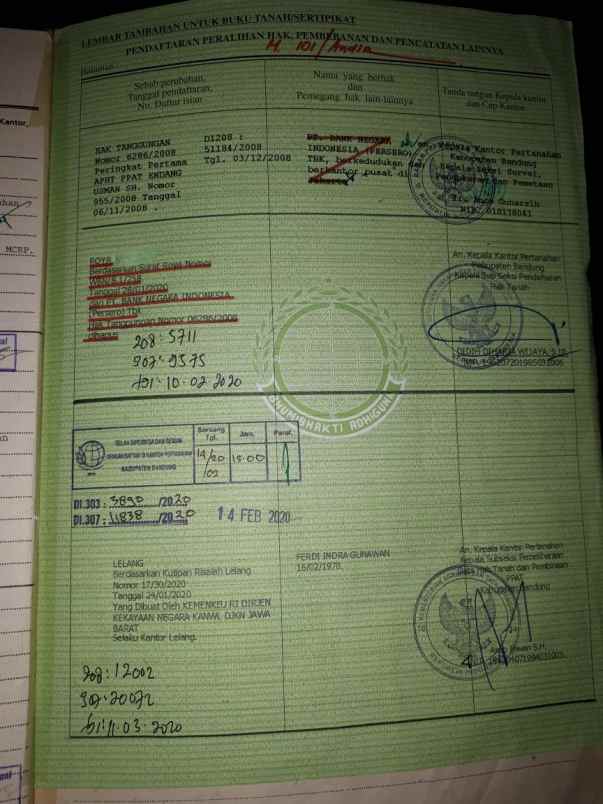 LEMBAR TAMBAHAN UNTUK BUKU TANAH/SERTIPIKAT
PENDAFTARAN PERALIHAN HAK, PEMBEBANAN DAN PENCATATAN LAINNYA
M. 101/Andir
Halaman
Sebab perubahan,
Tanggal pendaftaran,
No. Daftar isian
Nama yang berhak
dan
Pemegang hak lain-lainnya
Tanda tangan Kepala kantor
dan Cap Kantor
HAK TANGGUNGAN
Nomor 6286/2008
Peringkat Pertama
APHT PPAT ENDANG
USMAN SH. Nomor
955/2008 Tanggal
06/11/2008 .
DI208 :
51184/2008
Tgl. 03/12/2008
PT. BANK NEGARA
INDONESIA (PERSERO)
TBK, berkedudukan dan
berkantor pusat di
Jakarta
Kepala Kantor Pertanahan
Kabupaten Bandung
Kepala Seksi Survei,
Pengukuran dan Pemetaan
NIP. 010138041
ROYA :
Berdasarkan Surat Roya Nomor
Tanggal 28/01/2020
dari PT. BANK NEGARA INDONESIA
(Persero) Tbk
Hak Tanggungan Nomor 06286/2008
dihapus
208: 5711
307: 9575
Tgl: 10-02 2020
An. Kepala Kantor Pertanahan
Kabupaten Bandung
Kepala Sub Seksi Pendaftaran
Hak Tanah
BHUMI BHAKTI ADHIGUNA
TELAH DIPERIKSA DAN SESUAI
DENGAN DAFTAR DI KANTOR PERTANAHAN
KABUPATEN BANDUNG
Bandung
Tgl.
Jam.
Paraf.
14/20
/02
15.00
DI.303 : 3890 /2020
DI.307 : 11838 /2020
14 FEB 2020
LELANG
Berdasarkan Kutipan Risalah Lelang
Nomor 17/30/2020
Tanggal 24/01/2020
Yang Dibuat Oleh KEMENKEU RI DIRJEN
KEKAYAAN NEGARA KANWIL DJKN JAWA
BARAT
Selaku Kantor Lelang.
FERDI INDRA GUNAWAN
16/02/1978.
An. Kepala Kantor Pertanahan
Kepala Subseksi Pemeliharaan
Data Hak Tanah dan Pembinaan
PPAT
Kabupaten Bandung
208: 12002
307: 20072
Tgl: 11-03-2020